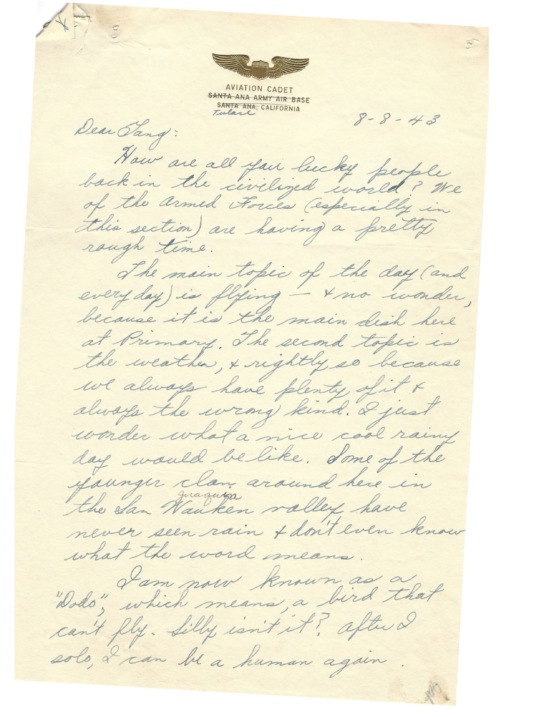 AVIATION CADET
SANTA ANA ARMY AIR BASE
SANTA ANA, CALIFORNIA
Tulare
8-8-43
Dear Gang:
How are all you lucky people
back in the civilized world? We
of the Armed Forces (especially in
this section) are having a pretty
rough time.
The main topic of the day (and
every day) is flying — & no wonder,
because it is the main dish here
at Primary. The second topic is
the weather, & rightly so because
we always have plenty of it &
always the wrong kind. I just
wonder what a nice cool rainy
day would be like. Some of the
younger clan around here in
the San Wauken valley have
never seen rain & don't even know
what the word means.
I am now known as a
"Dodo", which means, a bird that
can't fly. Silly isn't it? After I
solo, I can be a human again.